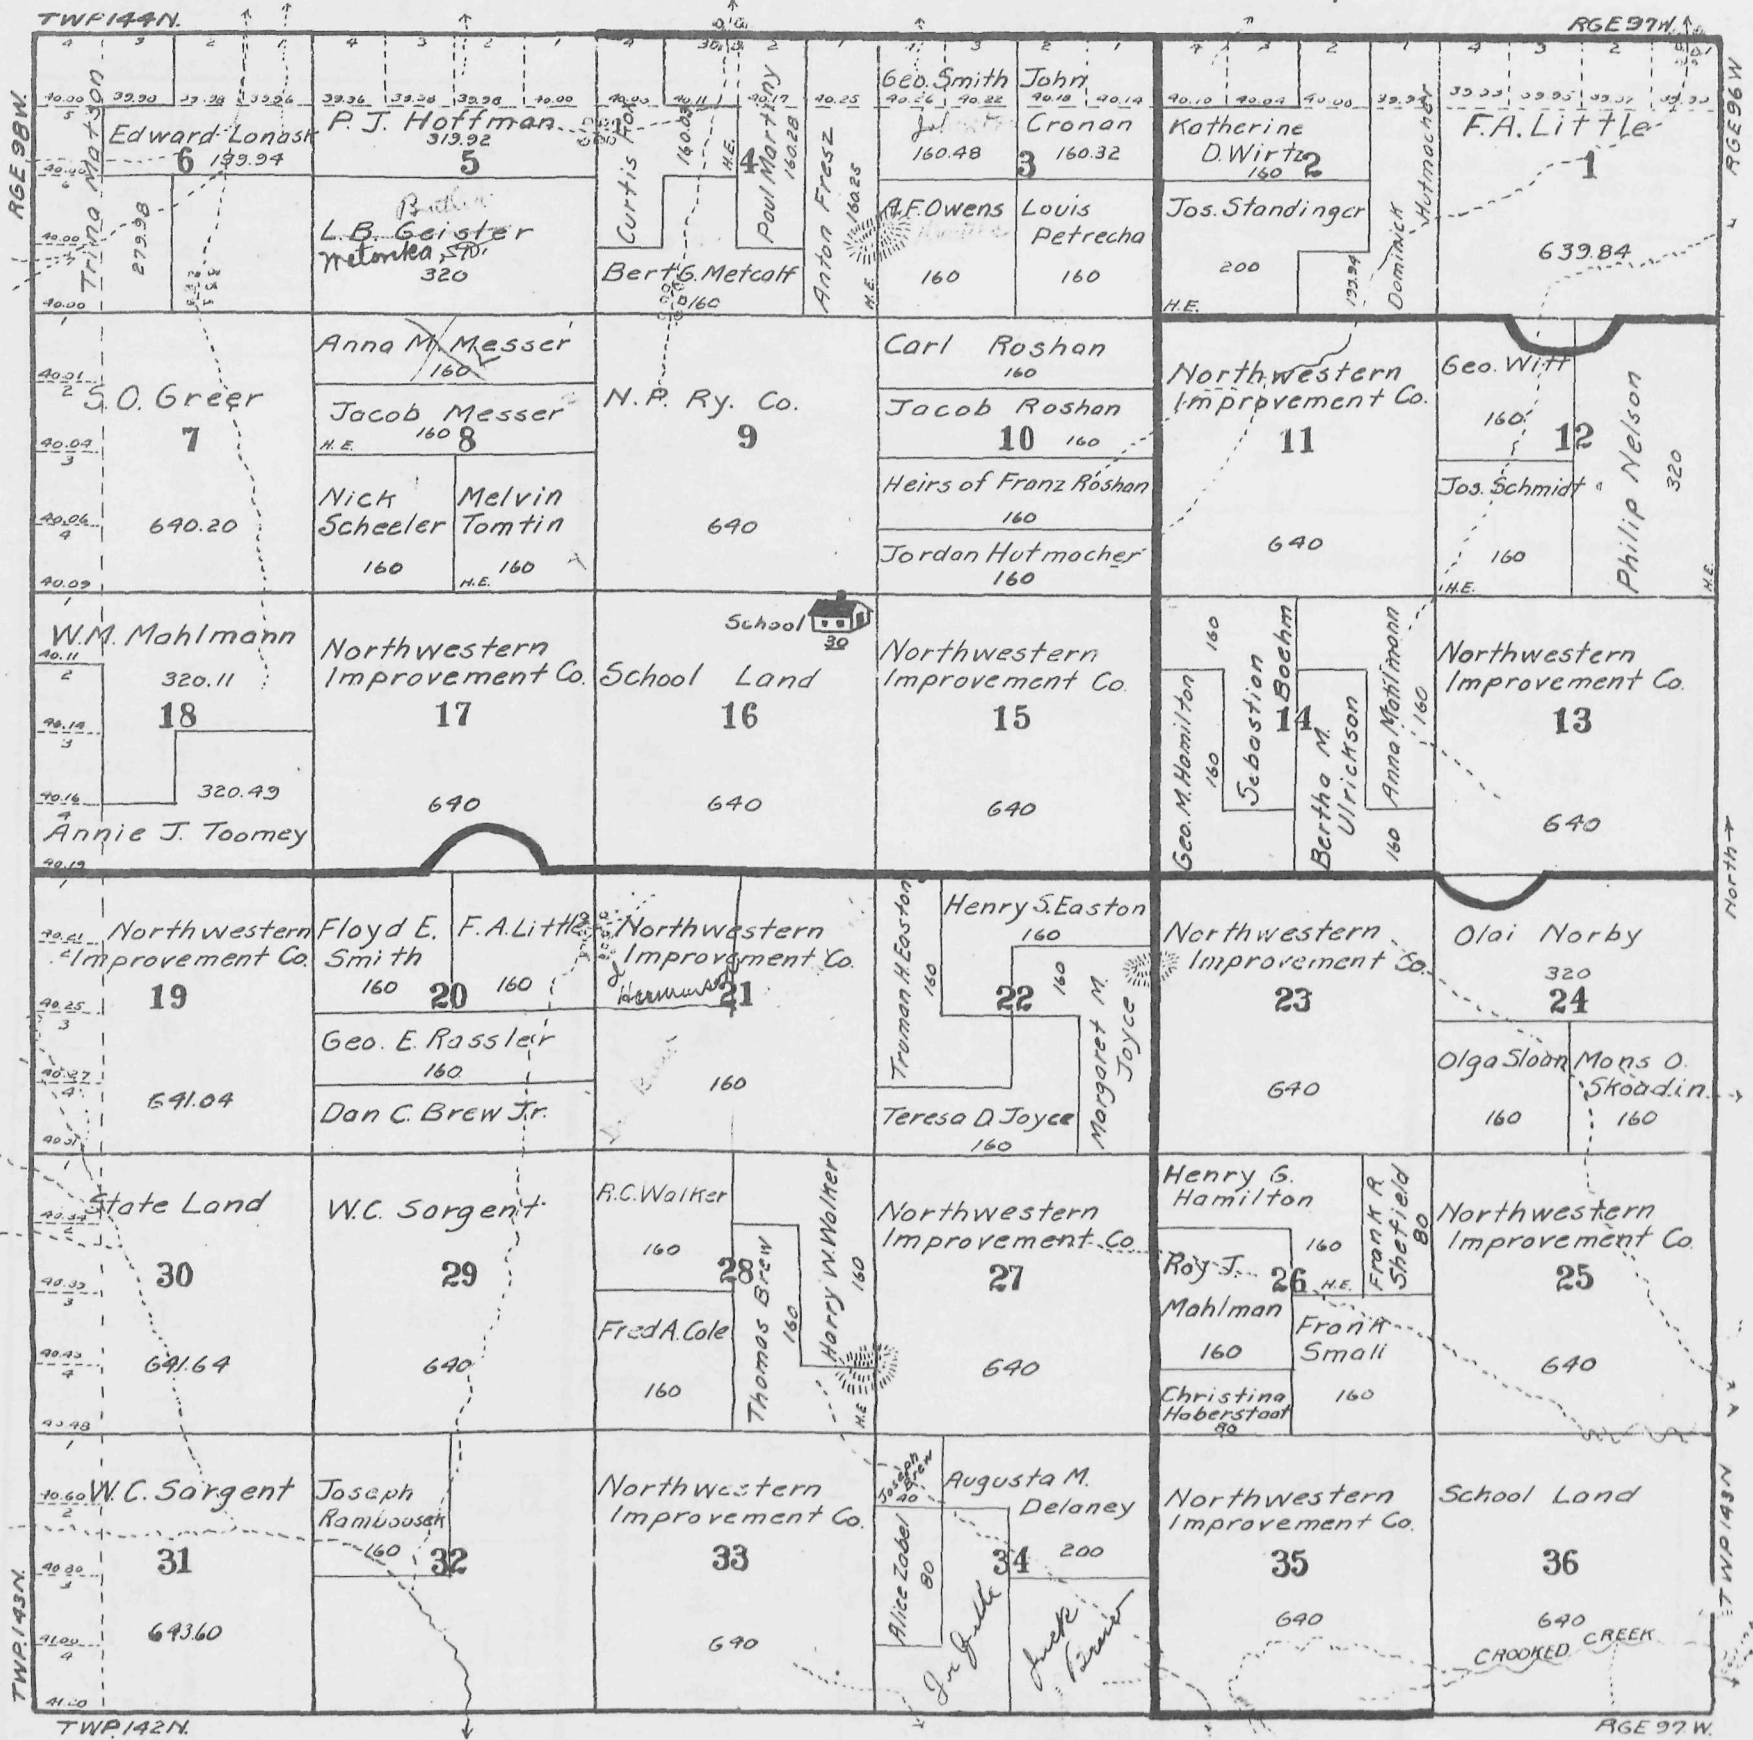 TWP 144 N.
RGE 97 W.
RGE 98 W.
RGE 96 W
4 3 2 1
40.00 39.90 39.98 39.96
5
Trina Matson
279.98
Edward Lonask
6 199.94
40.00
40.00
4 3 2 1
39.96 39.98 40.00
P. J. Hoffman
319.92
5
L.B. Geister
Wetonka, S.D.
320
Curtis Fox
160.09
H.E.
4
Paul Martiny
160.28
40.11 40.17 40.25
Anton Fresz
160.25
H.E.
Bert G. Metcalf
160
Geo. Smith
40.26 40.22
160.48
John
40.18 40.14
Cronan
3 160.32
A.F. Owens
160
Louis
Petrecha
160
40.10 40.04 40.00
Katherine
D. Wirtz
160 2
Jos. Standinger
200
H.E.
Dominick Hutmacher
199.94
4 3 2 1
F.A. Little
1
639.84
40.01
2
S.O. Greer
7
40.04
3
40.06
4
640.20
40.09
Anna M. Messer
160
Jacob Messer
160 8
H.E.
Nick
Scheeler
160
Melvin
Tomtin
160
H.E.
N.P. Ry. Co.
9
640
Carl Roshan
160
Jacob Roshan
10 160
Heirs of Franz Roshan
160
Jordan Hutmacher
160
Northwestern
Improvement Co.
11
640
Geo. Witt
160
12
Jos. Schmidt
160
H.E.
Philip Nelson
320
H.E.
1
W.M. Mahlmann
40.11
2
320.11
18
40.14
3
320.49
40.16
4
Annie J. Toomey
40.19
Northwestern
Improvement Co.
17
640
School
30
School Land
16
640
Northwestern
Improvement Co.
15
640
160
Geo. M. Hamilton
160
Sebastian
Boehm
14
Bertha M.
Ulrickson
160
Anna Mahlmann
160
Northwestern
Improvement Co.
13
640
North
1
40.21
2
Northwestern
Improvement Co.
19
40.25
3
40.27
4
641.04
40.31
Floyd E.
Smith
160
F.A. Little
160
20
Geo. E. Rassler
160
Dan C. Brew Jr.
Northwestern
Improvement Co.
21
160
Truman H. Easton
160
Henry S. Easton
160
22
160
Margaret M.
Joyce
Teresa D. Joyce
160
Northwestern
Improvement Co.
23
640
Olai Norby
320
24
Olga Sloan
160
Mons O.
Skoadin
160
State Land
30
3
4
641.64
40.48
W.C. Sargent
29
640
R.C. Walker
160
28
Fred A. Cole
160
Thomas Brew
160
Harry W. Walker
160
H.E.
Northwestern
Improvement Co
27
640
Henry G.
Hamilton
160
H.E.
Frank R.
Shefield
80
Roy J.
26
Mahlman
160
Frank
Smali
160
Christina
Haberstaat
80
Northwestern
Improvement Co.
25
640
1
40.60
2
W.C. Sargent
31
40.80
3
643.60
4
Joseph
Rambousek
160 32
Northwestern
Improvement Co.
33
640
Joseph
Brew
40
Alice Zabel
80
Augusta M.
Delaney
34 200
Jack
Brew
Northwestern
Improvement Co.
35
640
School Land
36
640
CROOKED CREEK
TWP. 143 N.
TWP 143 N
TWP. 142 N.
RGE 97. W.